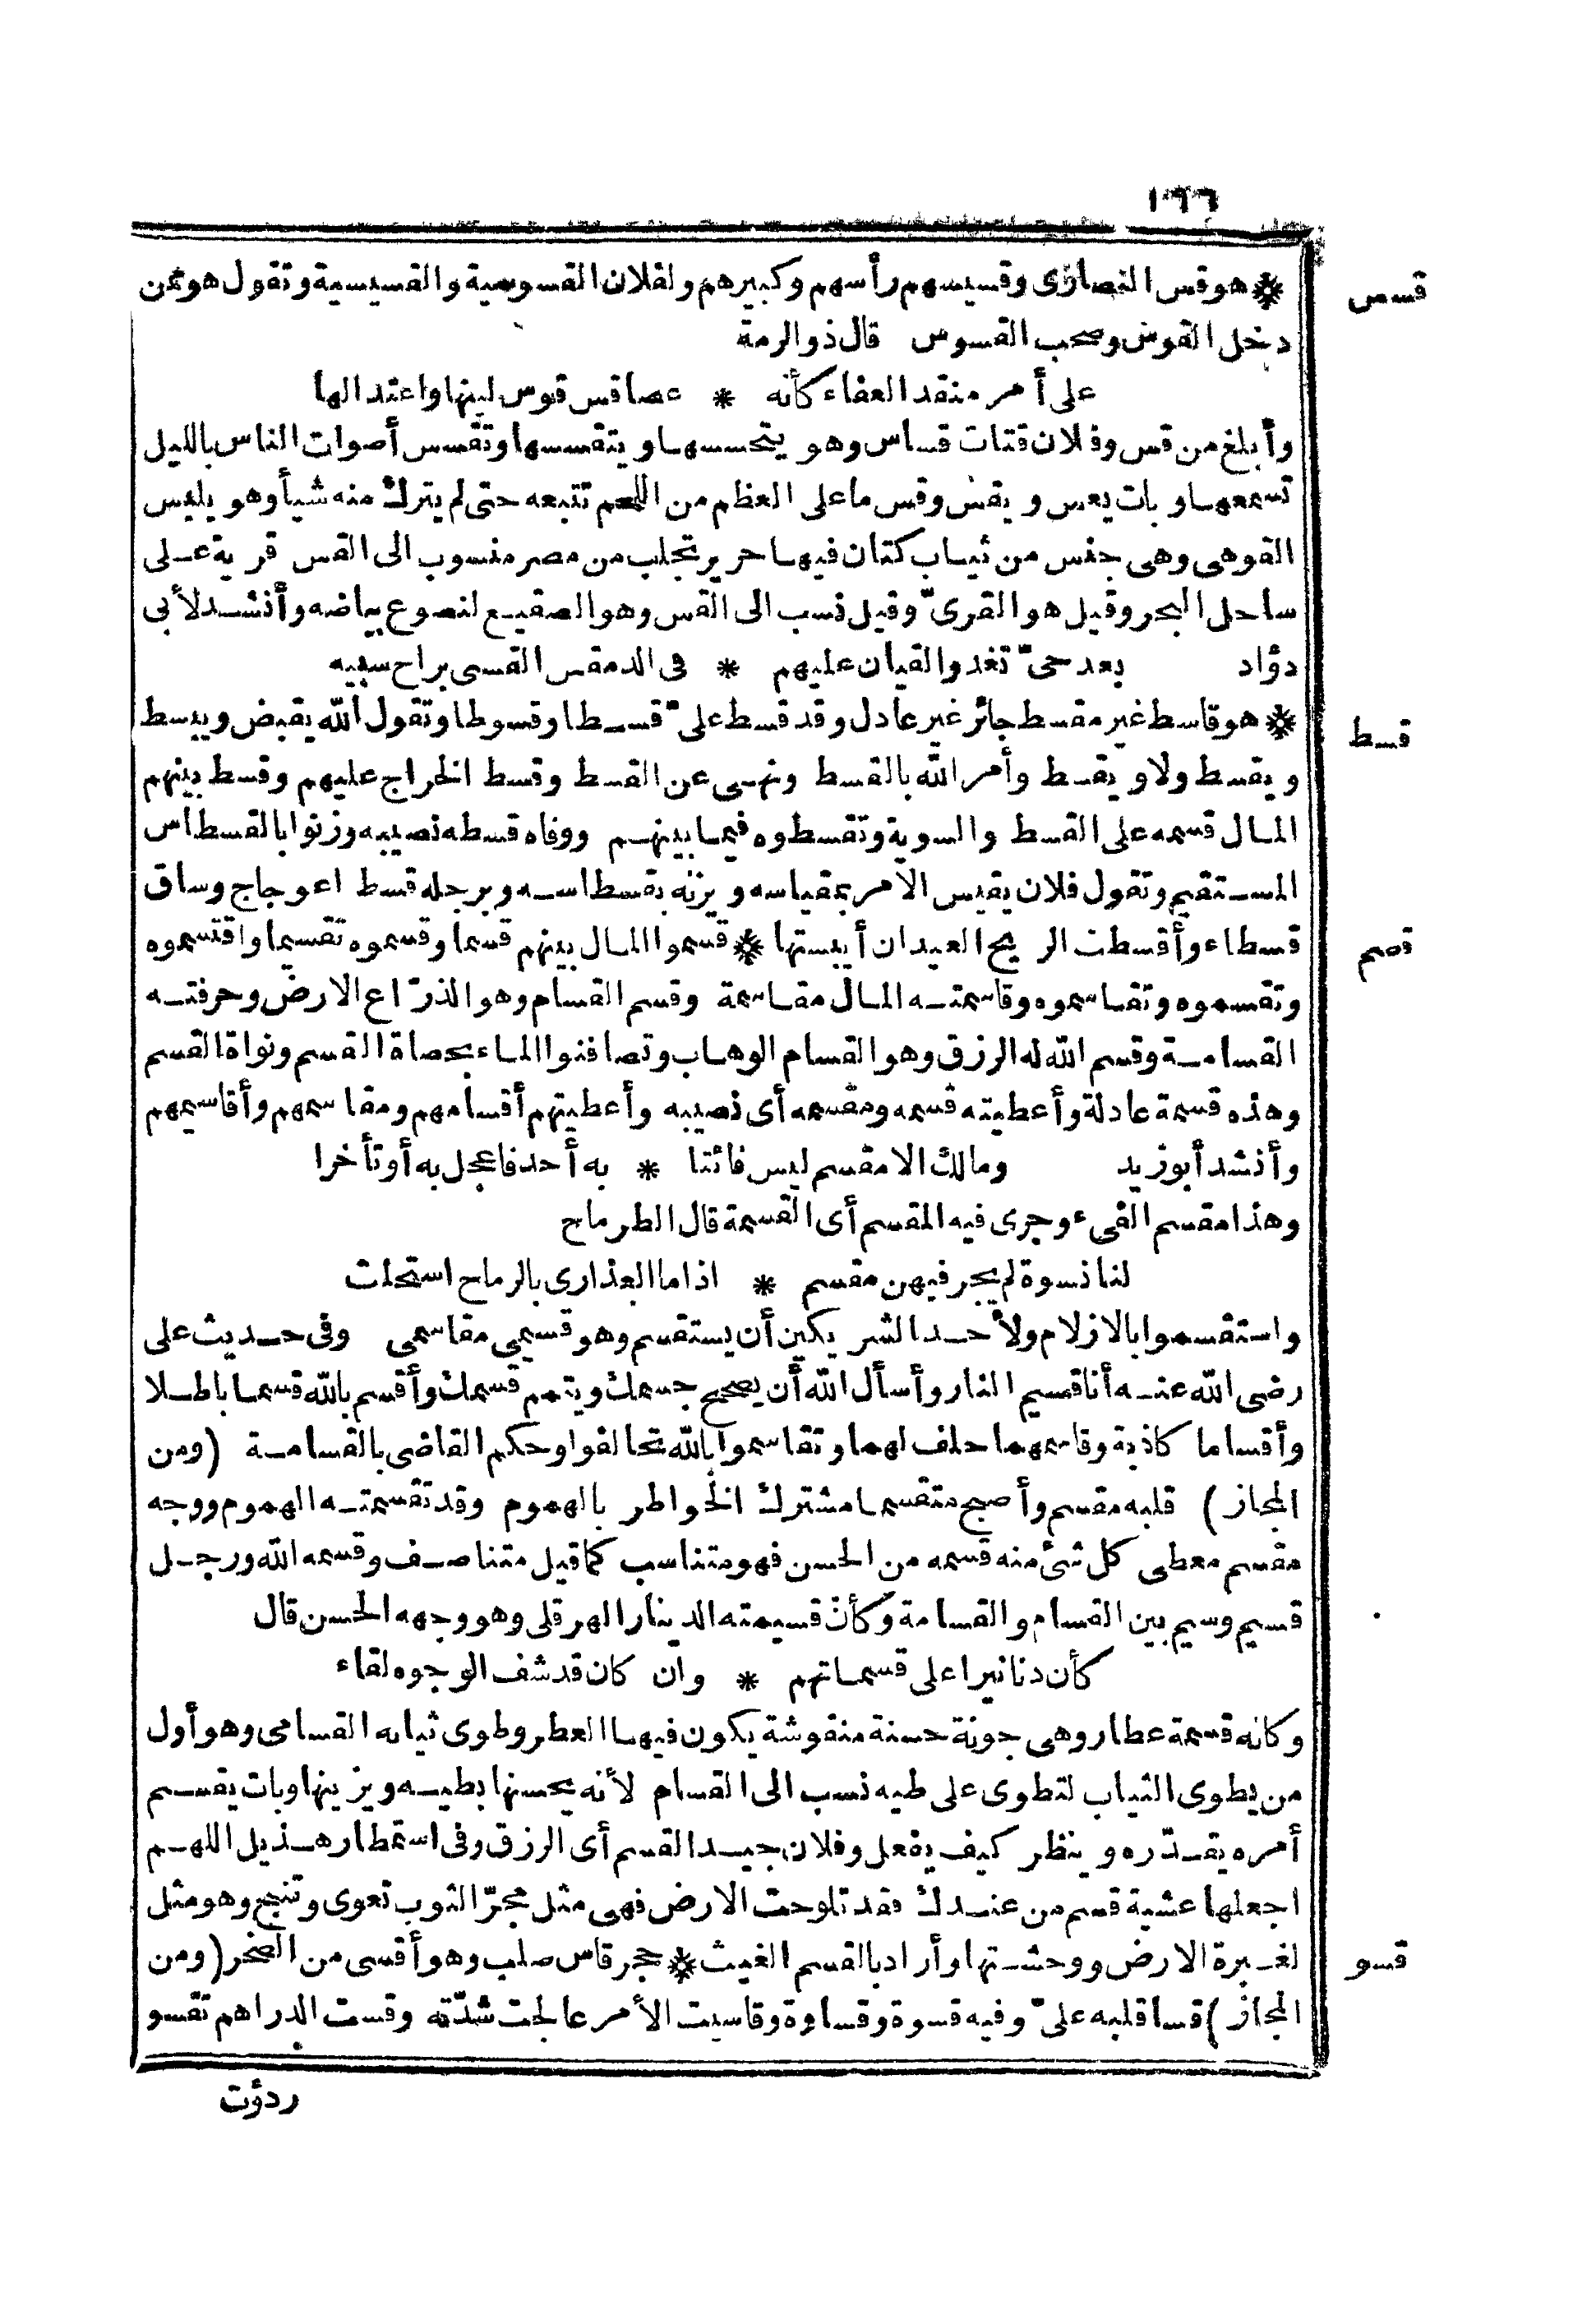 ١٩٦
قسس
❋ هو قس النصارى وقسيسهم رأسهم وكبيرهم ولفلان القسوسية والقسيسية وتقول هو ممن
دخل القوس وصحب القسوس قال ذو الرمة
على أمر منقد العفاء كأنه * عصا قس قوس لينها واعتدالها
وأبلغ من قس وفلان قتات قساس وهو يتحسسها ويتقسسها وتقسس أصوات الناس بالليل
تسمعها وبات يعس ويقس وقس ما على العظم من اللحم تتبعه حتى لم يترك منه شيأ وهو يلبس
القوهى وهى جنس من ثياب كتان فيها حرير تجلب من مصر منسوب الى القس قرية على
ساحل البحر وقيل هو القزىّ وقيل نسب الى القس وهو الصقيع لنصوع بياضه وأنشد لأبى
دؤاد بعد حىّ تغدو القيان عليهم * فى الدمقس القسى براح سبيه
قسط
❋ هو قاسط غير مقسط جائر غير عادل وقد قسط علىّ قسطا وقسوطا وتقول الله يقبض ويبسط
ويقسط ولا ويقسط وأمر الله بالقسط ونهى عن القسط وقسط الخراج عليهم وقسط بينهم
المال قسمه على القسط والسوية وتقسطوه فيما بينهم ووفاه قسطه نصيبه وزنوا بالقسطاس
المستقيم وتقول فلان يقيس الامر بمقياسه ويزنه بقسطاسه وبرجله قسط اعوجاج وساق
قسم
قسطاء وأقسطت الريح العيدان أيبستها ❋ قسموا المال بينهم قسما وقسموه تقسيما واقتسموه
وتقسموه وتقاسموه وقاسمته المال مقاسمة وقسم القسام وهو الذرّاع الارض وحرفته
القسامة وقسم الله له الرزق وهو القسام الوهاب وتصافنوا الماء بحصاة القسم ونواة القسم
وهذه قسمة عادلة وأعطيته قسمه ومقسمه أى نصيبه وأعطيتهم أقسامهم ومقاسمهم وأقاسيمهم
وأنشد أبو زيد ومالك الا مقسم ليس فائتا * به أحد فاعجل به أو تأخرا
وهذا مقسم الفىء وجرى فيه المقسم أى القسمة قال الطرماح
لنا نسوة لم يجر فيهن مقسم * اذا ما العذارى بالرماح استحلت
واستقسموا بالازلام ولأحد الشريكين أن يستقسم وهو قسيمى مقاسمى وفى حديث على
رضى الله عنه أنا قسيم النار وأسأل الله أن يصحح جسمك ويتمم قسمك وأقسم بالله قسما باطلا
وأقساما كاذبة وقاسمهما حلف لهما وتقاسموا بالله تحالفوا وحكم القاضى بالقسامة (ومن
المجاز) قلبه مقسم وأصبح متقسما مشترك الخواطر بالهموم وقد تقسمته الهموم ووجه
مقسم معطى كل شئ منه قسمه من الحسن فهو متناسب كما قيل متناصف وقسمه الله ورجل
قسيم وسيم بين القسام والقسامة وكأن قسيمته الدينار الهرقلى وهو وجهه الحسن قال
كأن دنانيرا على قسماتهم * وان كان قد شف الوجوه لقاء
وكانه قسمة عطار وهى جونة حسنة منقوشة يكون فيها العطر وطوى ثيابه القسامى وهو أول
من يطوى الثياب لتطوى على طيه نسب الى القسام لأنه يحسنها بطيه ويزينها وبات يقسم
أمره يقدّره وينظر كيف يفعل وفلان جيد القسم أى الرزق وفى استمطار هذيل اللهم
اجعلها عشية قسم من عندك فقد تلوحت الارض فهى مثل مجرّ الثوب تعوى وتنبح وهو مثل
قسو
لغبرة الارض ووحشتها وأراد بالقسم الغيث ❋ حجر قاس صلب وهو أقسى من الصخر (ومن
المجاز) قسا قلبه علىّ وفيه قسوة وقساوة وقاسيت الأمر عالجت شدّته وقست الدراهم تقسو
ردؤت